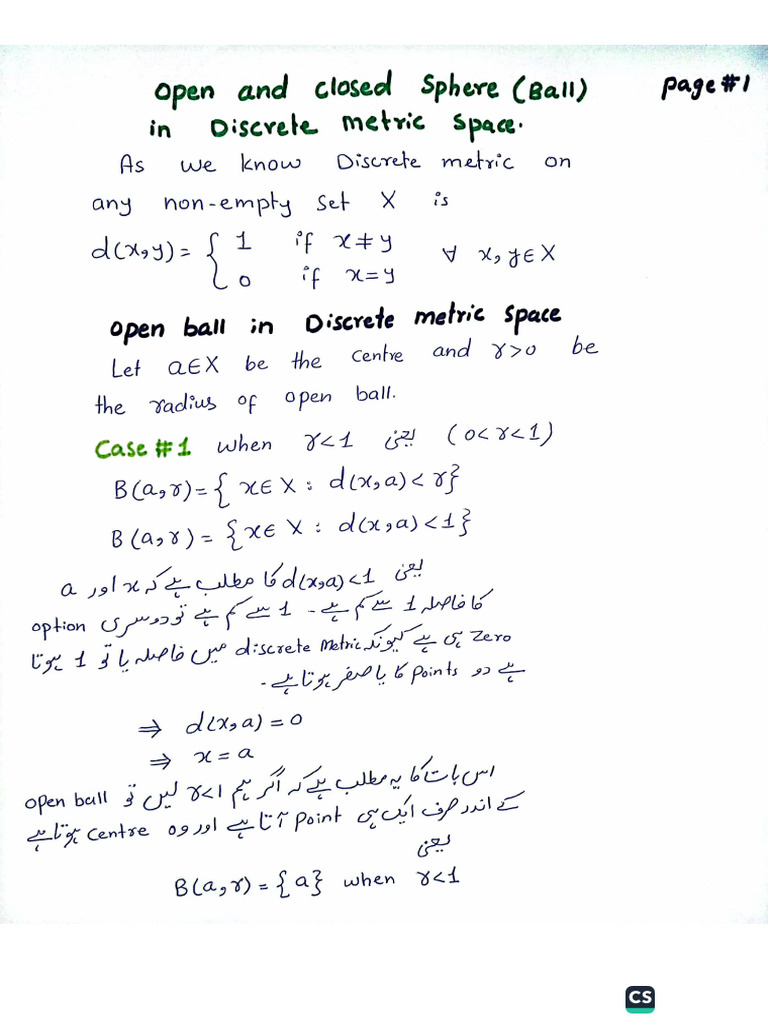 Open and Closed Sphere (Ball) Page #1
in Discrete metric Space.
As we know Discrete metric on
any non-empty set X is
d(x,y) = { 1 if x≠y
0 if x=y ∀ x, y∈X
Open ball in Discrete metric Space
Let a∈X be the centre and r>0 be
the radius of open ball.
Case #1 when r<1 یعنی (0<r<1)
B(a,r) = { x∈X : d(x,a) < r}
B(a,r) = {x∈X : d(x,a) < 1}
یعنی d(x,a)<1 کا مطلب ہے کہ x اور a
کا فاصلہ 1 سے کم ہے۔ 1 سے کم ہے تو دوسری option
Zero ہی ہے کیونکہ discrete Metric میں فاصلہ یا تو 1 ہوتا
ہے دو Points کا یا صفر ہوتا ہے۔
⇒ d(x,a) = 0
⇒ x = a
اس بات کا یہ مطلب ہے کہ اگر ہم r<1 لیں تو open ball
کے اندر صرف ایک ہی Point آتا ہے اور وہ Centre ہوتا ہے
یعنی
B(a,r) = {a} when r<1
CS